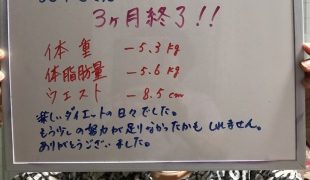 3ヶ月終了!!
体重 −5.3kg
体脂肪量 −5.6kg
ウエスト −8.5cm
楽しいダイエットの日々でした。
もう少しの努力が足りなかったかもしれません。
ありがとうございました。